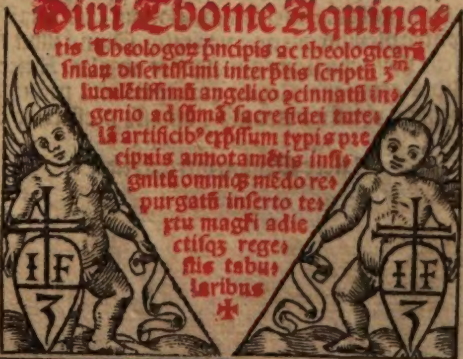 Diui Thome Aquina⸗
tis Theologoꝝ p̃ncipis ac theologicarũ
sniaꝝ disertissimi interp̃tis scriptũ 3ᵐ
luculẽtissimũ angelico ↄcinnatũ in⸗
genio ad sũmã sacre fidei tute⸗
lã artificibꝰ exp̃ssum typis pre
cipuis annotamẽtis insi⸗
gnitũ omniqꝫ mẽdo re⸗
purgatũ inserto te⸗
xtu magr̃i adie
ctisqꝫ rege⸗
stis tabu⸗
laribus
✠
I F
3
I F
3